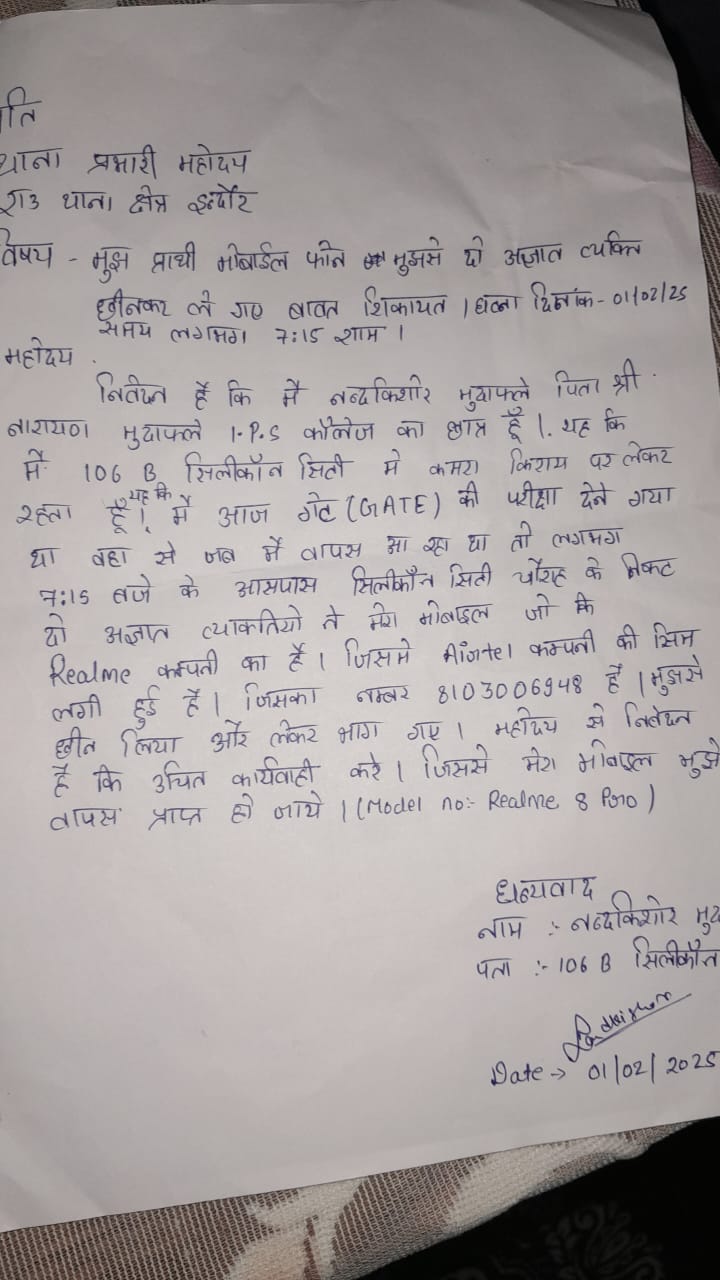 प्रति
थाना प्रभारी महोदय
राउ थाना क्षेत्र इन्दौर
विषय - मुझ प्राथी मोबाईल फोन मुझसे दो अज्ञात व्यक्ति
छीनकर ले गए बावत शिकायत । घटना दिनांक - 01/02/25
समय लगभग 7:15 शाम ।
महोदय .
निवेदन है कि मै नन्दकिशोर मुदाफले पिता श्री
नारायण मुदाफले I.P.S कॉलेज का छात्र हूँ । यह कि
मैं 106 B सिलीकॉन सिटी मे कमरा किराय पर लेकर
रहता हूँ । यह कि मैं आज गेट (GATE) की परीक्षा देने गया
था वहा से जब मैं वापस आ रहा था तो लगभग
7:15 बजे के आसपास सिलीकॉन सिटी चौराहे के निकट
दो अज्ञात व्यक्तियो ने मेरा मोबाइल जो कि
Realme कम्पनी का है । जिसमे Airtel कम्पनी की सिम
लगी हुई है । जिसका नम्बर 8103006948 है । मुझसे
छीन लिया और लेकर भाग गए । महोदय से निवेदन
है कि उचित कार्यवाही करे । जिससे मेरा मोबाइल मुझे
वापस प्राप्त हो जाये । (Model no:- Realme 8 Pro)
धन्यवाद
नाम :- नन्दकिशोर मुद
पता :- 106 B सिलीकॉन
Date → 01/02/2025